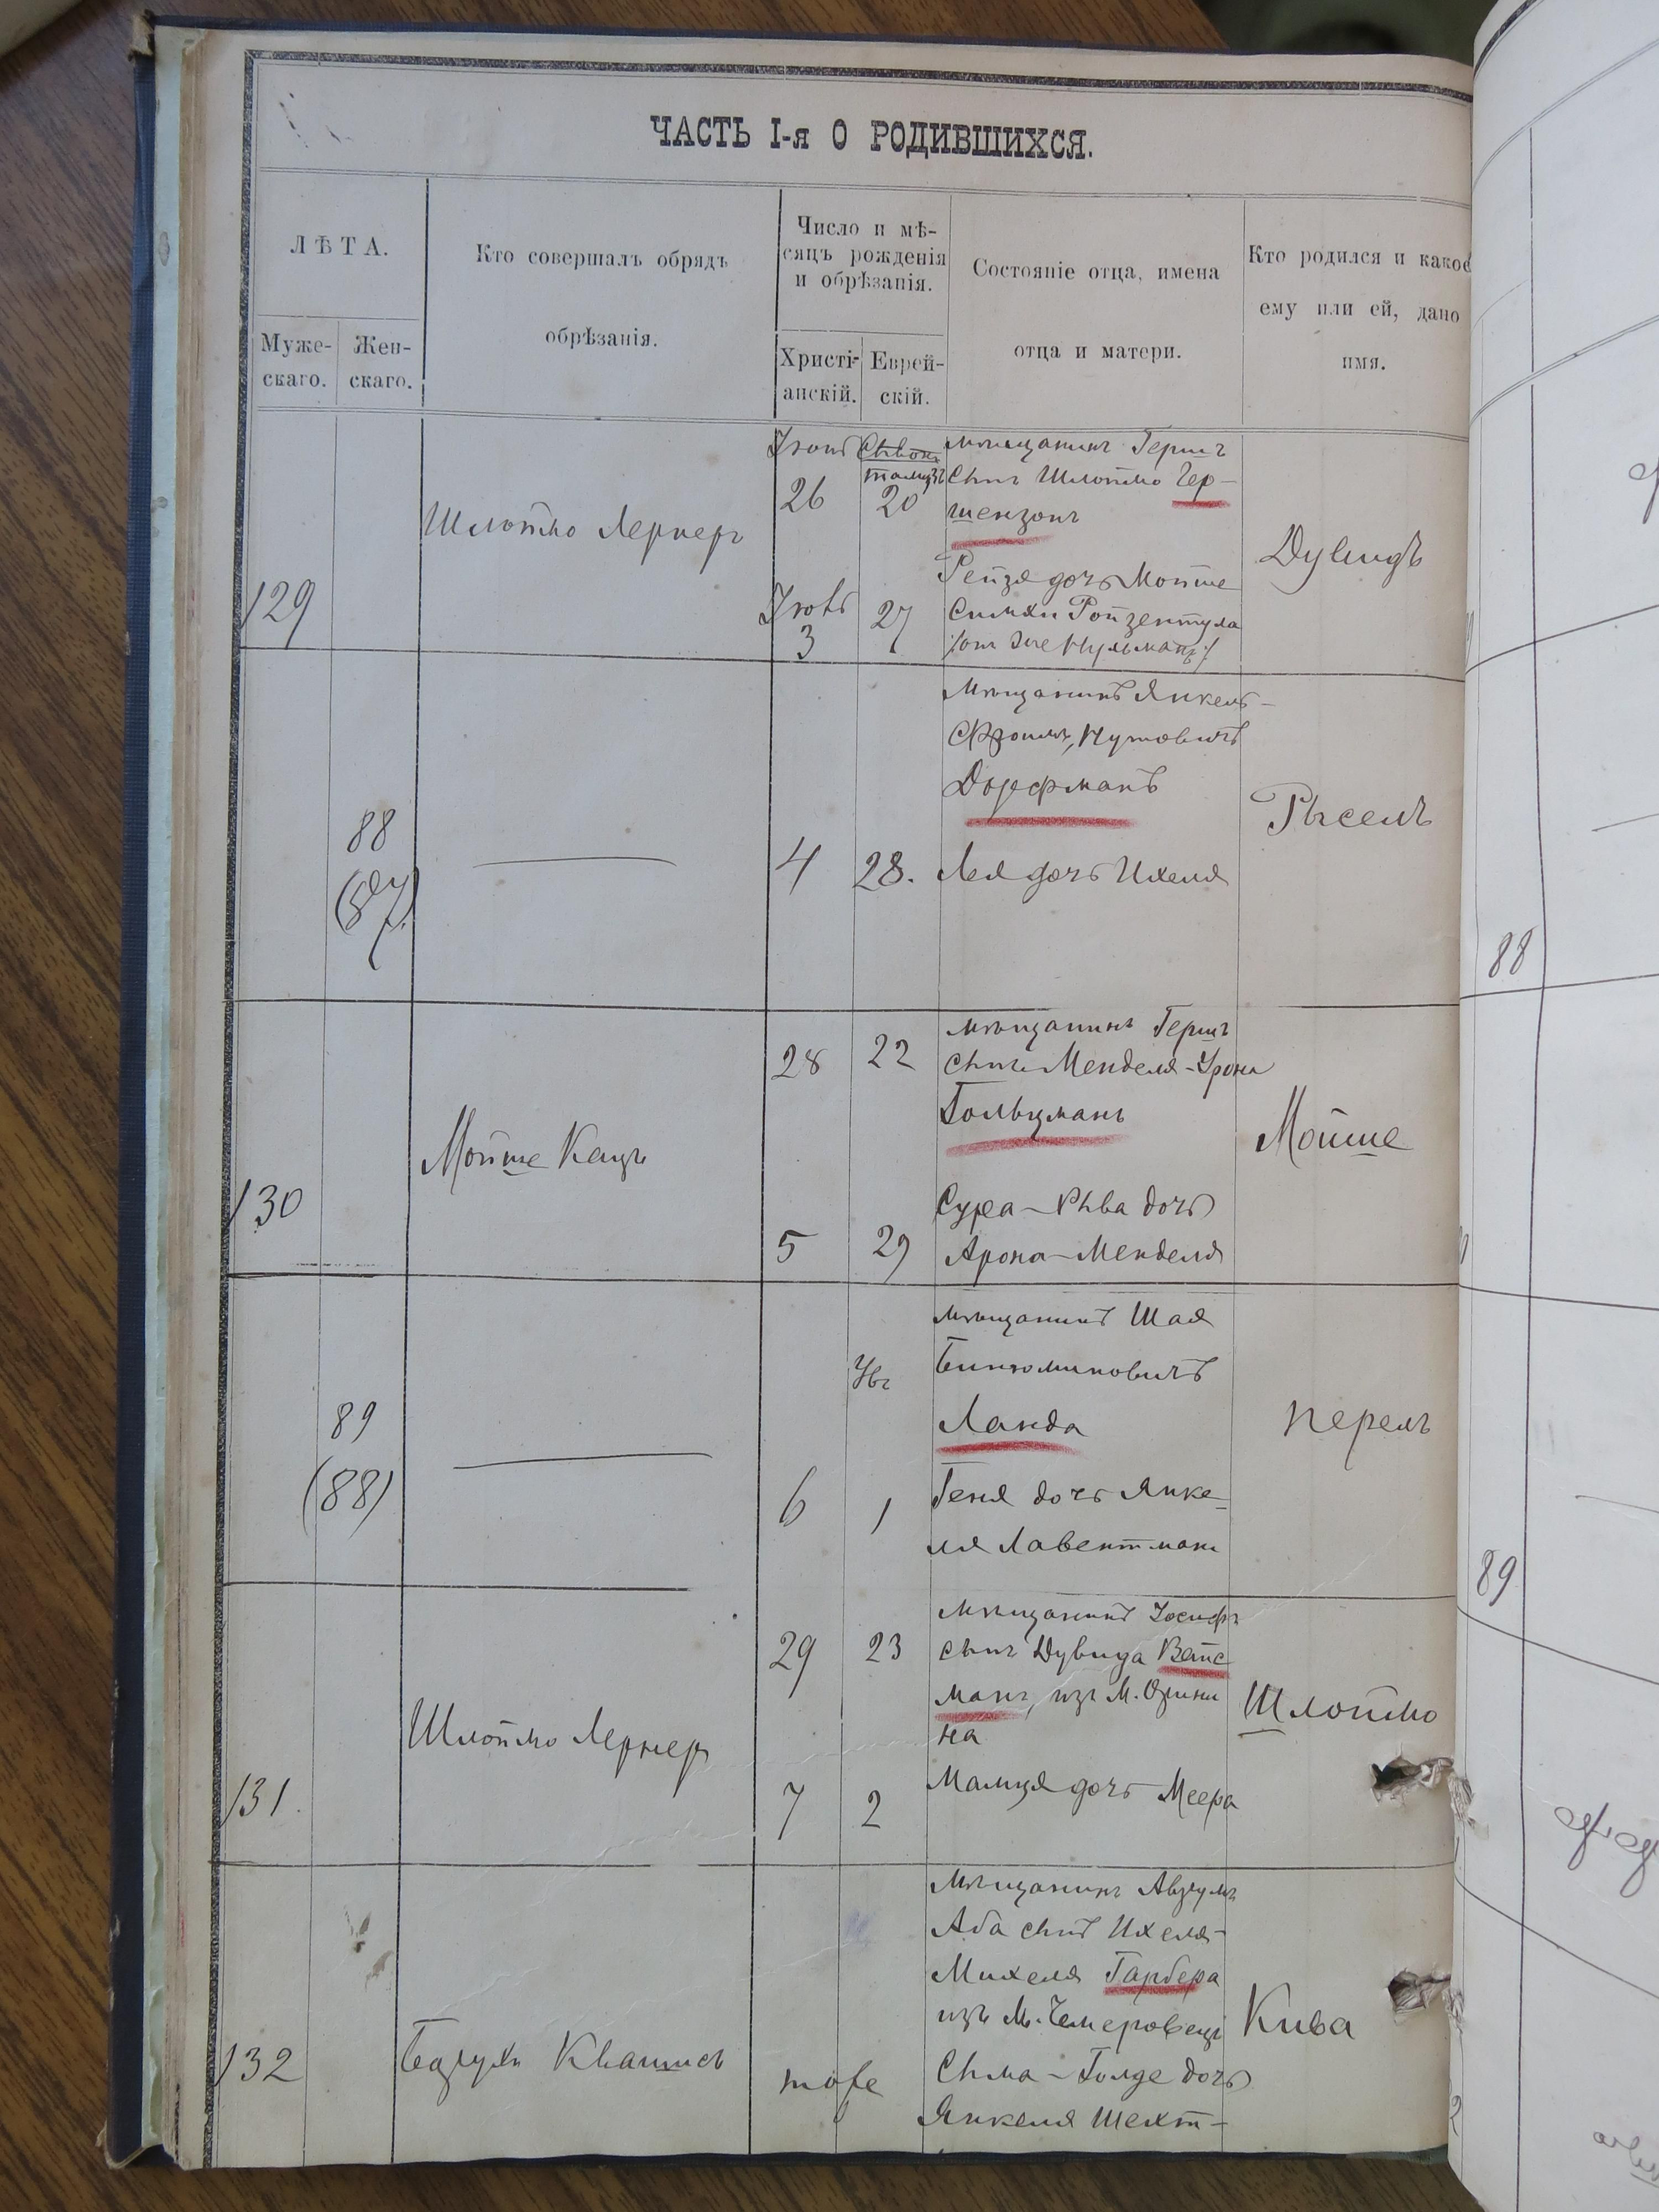 ЧАСТЬ I-я О РОДИВШИХСЯ.
ЛѢТА.
Муже-
скаго.
Жен-
скаго.
Кто совершалъ обрядъ
обрѣзанія.
Число и мѣ-
сяцъ рожденія
и обрѣзанія.
Христі-
анскій.
Еврей-
скій.
Состояніе отца, имена
отца и матери.
Кто родился и какое
ему или ей, дано
имя.
129
Шлоймо Лернеръ
26
20
3
27
мѣщанинъ Гершъ
сынъ Шлоймо Гер-
шензонъ
Рейзя дочь Мойше
Симхи Ройзентула
Дувидъ
88
(87)
4
28.
Мѣщанинъ Янкель-
Фроимъ
Дорфманъ
Лея дочь Ихеля
Рысель
88
130
Мойше Кацъ
28
22
5
29
мѣщанинъ Гершъ
сынъ Менделя-Урона
Гольцманъ
Сура-Рыва дочь
Арона-Менделя
Мойше
89
(88)
6
1
мѣщанинъ Шая
Бинюминовичъ
Ланда
Геня дочь Янке-
ля Лавентман
Перель
89
131.
Шлоймо Лернеръ
29
23
7
2
мѣщанинъ Іосифъ
сынъ Дувида Вайс
манъ, изъ М. Орини
на
Малця дочь Меера
Шлоймо
132
Квашисъ
тоже
Мѣщанинъ Аврумъ
Аба сынъ Ихеля-
Михеля Гарбера
изъ М. Чемеровецъ
Сыма-Голде дочь
Янкеля Шехт-
Кива
2